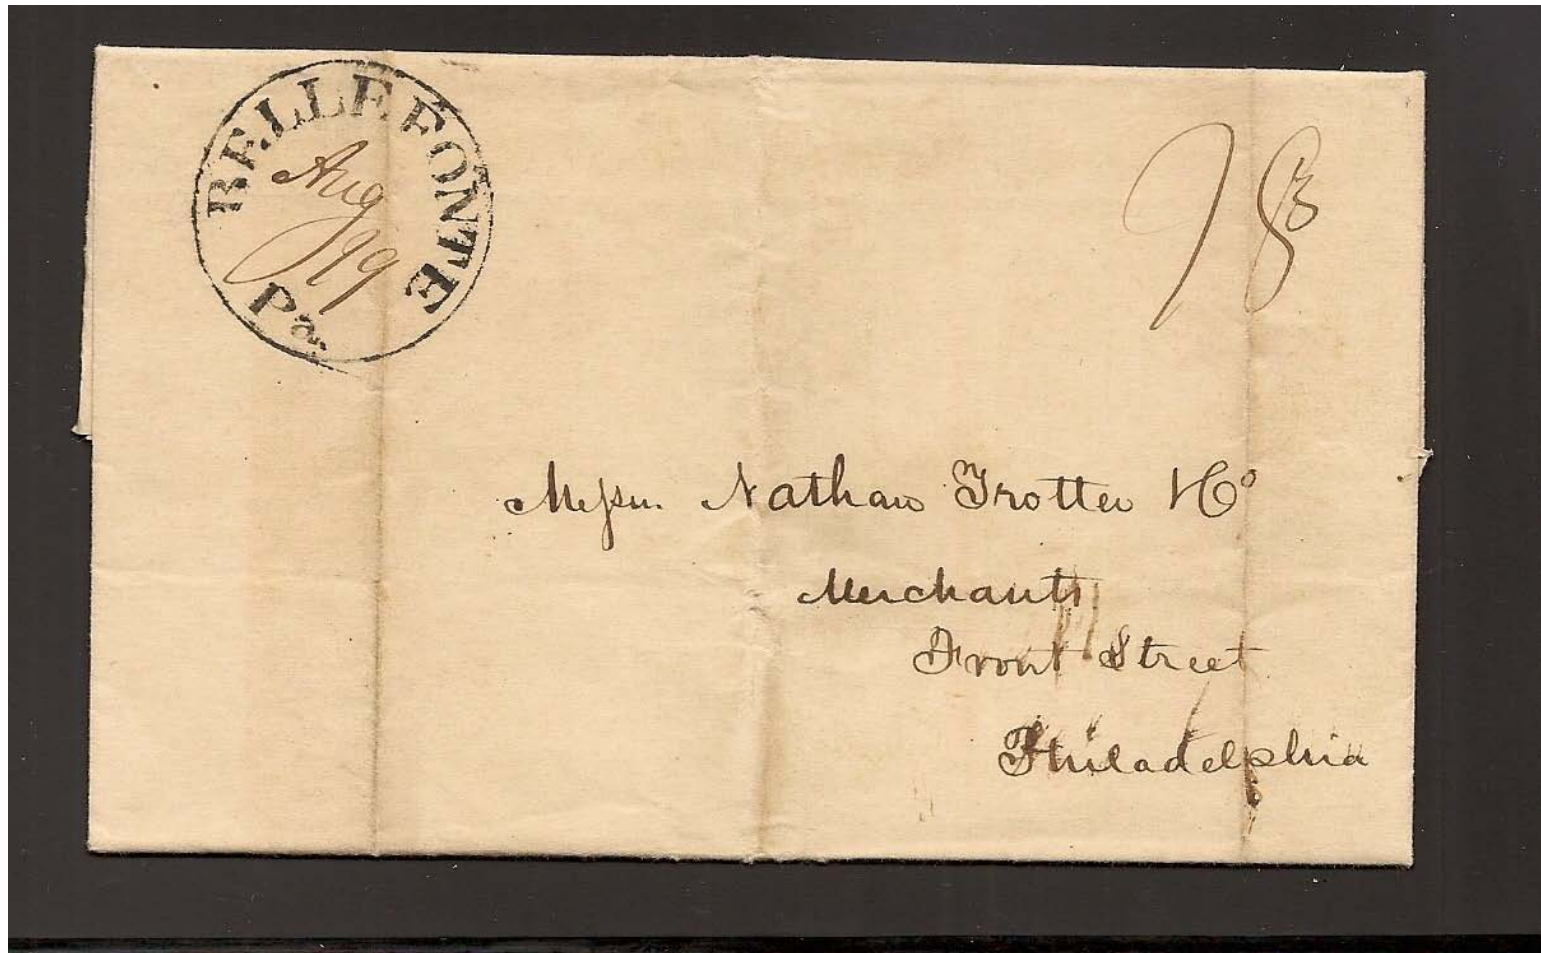 BELLEFONTE
Aug
Pa.
Messrs. Nathan Trotter & Co
Merchants
Front Street
Philadelphia